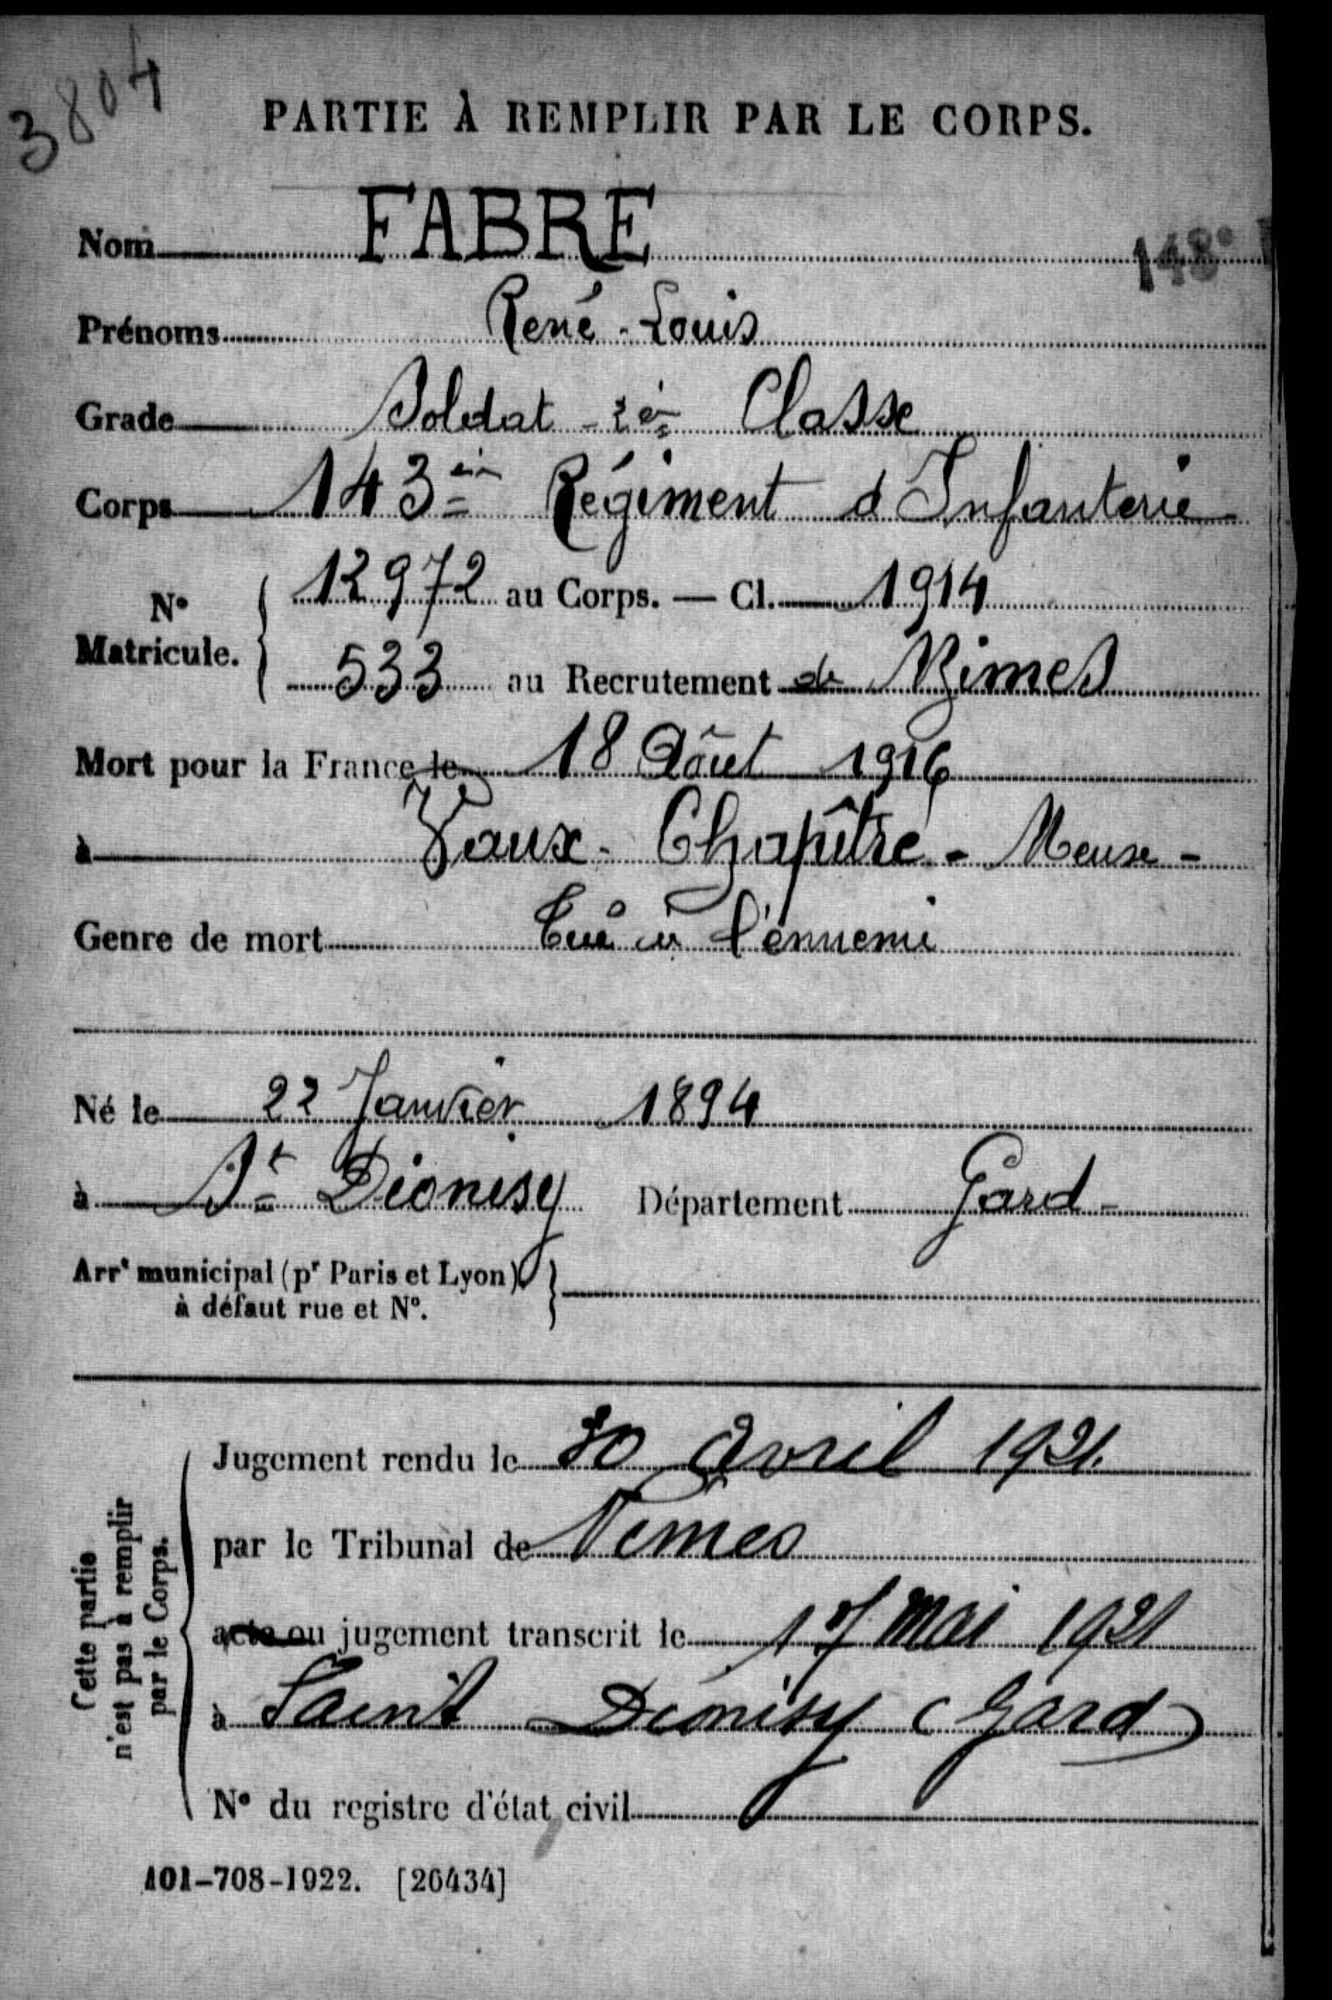 3804
PARTIE À REMPLIR PAR LE CORPS.
Nom FABRE
148°
Prénoms René-Louis
Grade Soldat 2è Classe
Corps 143è Régiment d'Infanterie
N° Matricule. 12972 au Corps. — Cl. 1914
533 au Recrutement de Nîmes
Mort pour la France le 18 Août 1916
à Vaux-Chapître - Meuse -
Genre de mort Tué à l'ennemi
Né le 22 Janvier 1894
à St Dionisy Département Gard -
Arrt municipal (pr Paris et Lyon),
à défaut rue et N°.
Cette partie
n'est pas à remplir
par le Corps.
Jugement rendu le 30 avril 1921.
par le Tribunal de Nîmes
acte ou jugement transcrit le 17 mai 1921
à Saint Dionisy (Gard)
N° du registre d'état civil
101-708-1922. [26434]